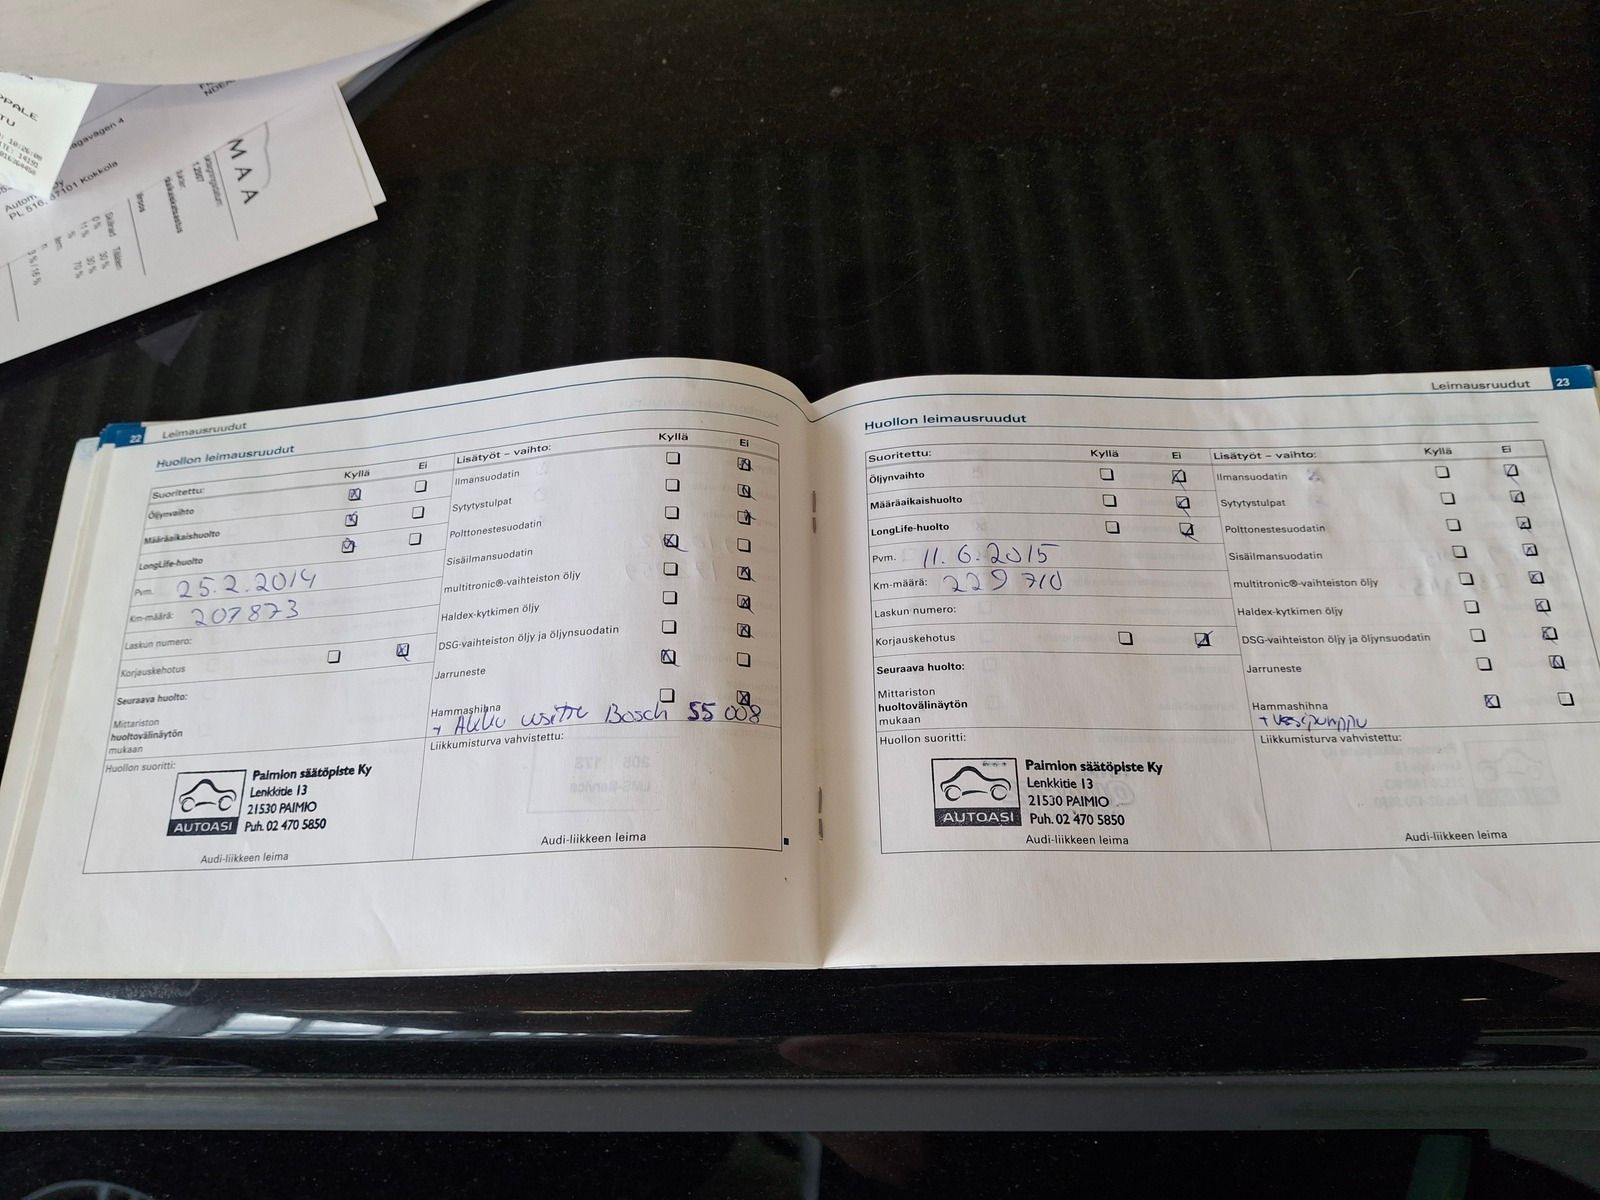 PPALE
TU
agavägen 4
Autom
Oy
PL 516, 67101 Kokkola
MAA
1.2007
Skillnad Tillåten
0 % 30 %
11 % 30 %
% 70 %
3 % / 16 %
22 Leimausruudut
Huollon leimausruudut
Suoritettu: Kyllä Ei
Öljynvaihto
Määräaikaishuolto
LongLife-huolto
Pvm. 25.2.2014
Km-määrä: 207873
Laskun numero:
Korjauskehotus
Seuraava huolto:
Mittariston
huoltovälinäytön
mukaan
Lisätyöt – vaihto: Kyllä Ei
Ilmansuodatin
Sytytystulpat
Polttonestesuodatin
Sisäilmansuodatin
multitronic®-vaihteiston öljy
Haldex-kytkimen öljy
DSG-vaihteiston öljy ja öljynsuodatin
Jarruneste
Hammashihna
+ Akku Bosch 55 008
Huollon suoritti:
AUTOASI
Paimion säätöpiste Ky
Lenkkitie 13
21530 PAIMIO
Puh. 02 470 5850
Audi-liikkeen leima
Liikkumisturva vahvistettu:
Audi-liikkeen leima
Leimausruudut 23
Huollon leimausruudut
Suoritettu: Kyllä Ei
Öljynvaihto
Määräaikaishuolto
LongLife-huolto
Pvm. 11.6.2015
Km-määrä: 229 710
Laskun numero:
Korjauskehotus
Seuraava huolto:
Mittariston
huoltovälinäytön
mukaan
Lisätyöt – vaihto: Kyllä Ei
Ilmansuodatin
Sytytystulpat
Polttonestesuodatin
Sisäilmansuodatin
multitronic®-vaihteiston öljy
Haldex-kytkimen öljy
DSG-vaihteiston öljy ja öljynsuodatin
Jarruneste
Hammashihna
+ vesipumppu
Huollon suoritti:
AUTOASI
Paimion säätöpiste Ky
Lenkkitie 13
21530 PAIMIO
Puh. 02 470 5850
Audi-liikkeen leima
Liikkumisturva vahvistettu:
Audi-liikkeen leima